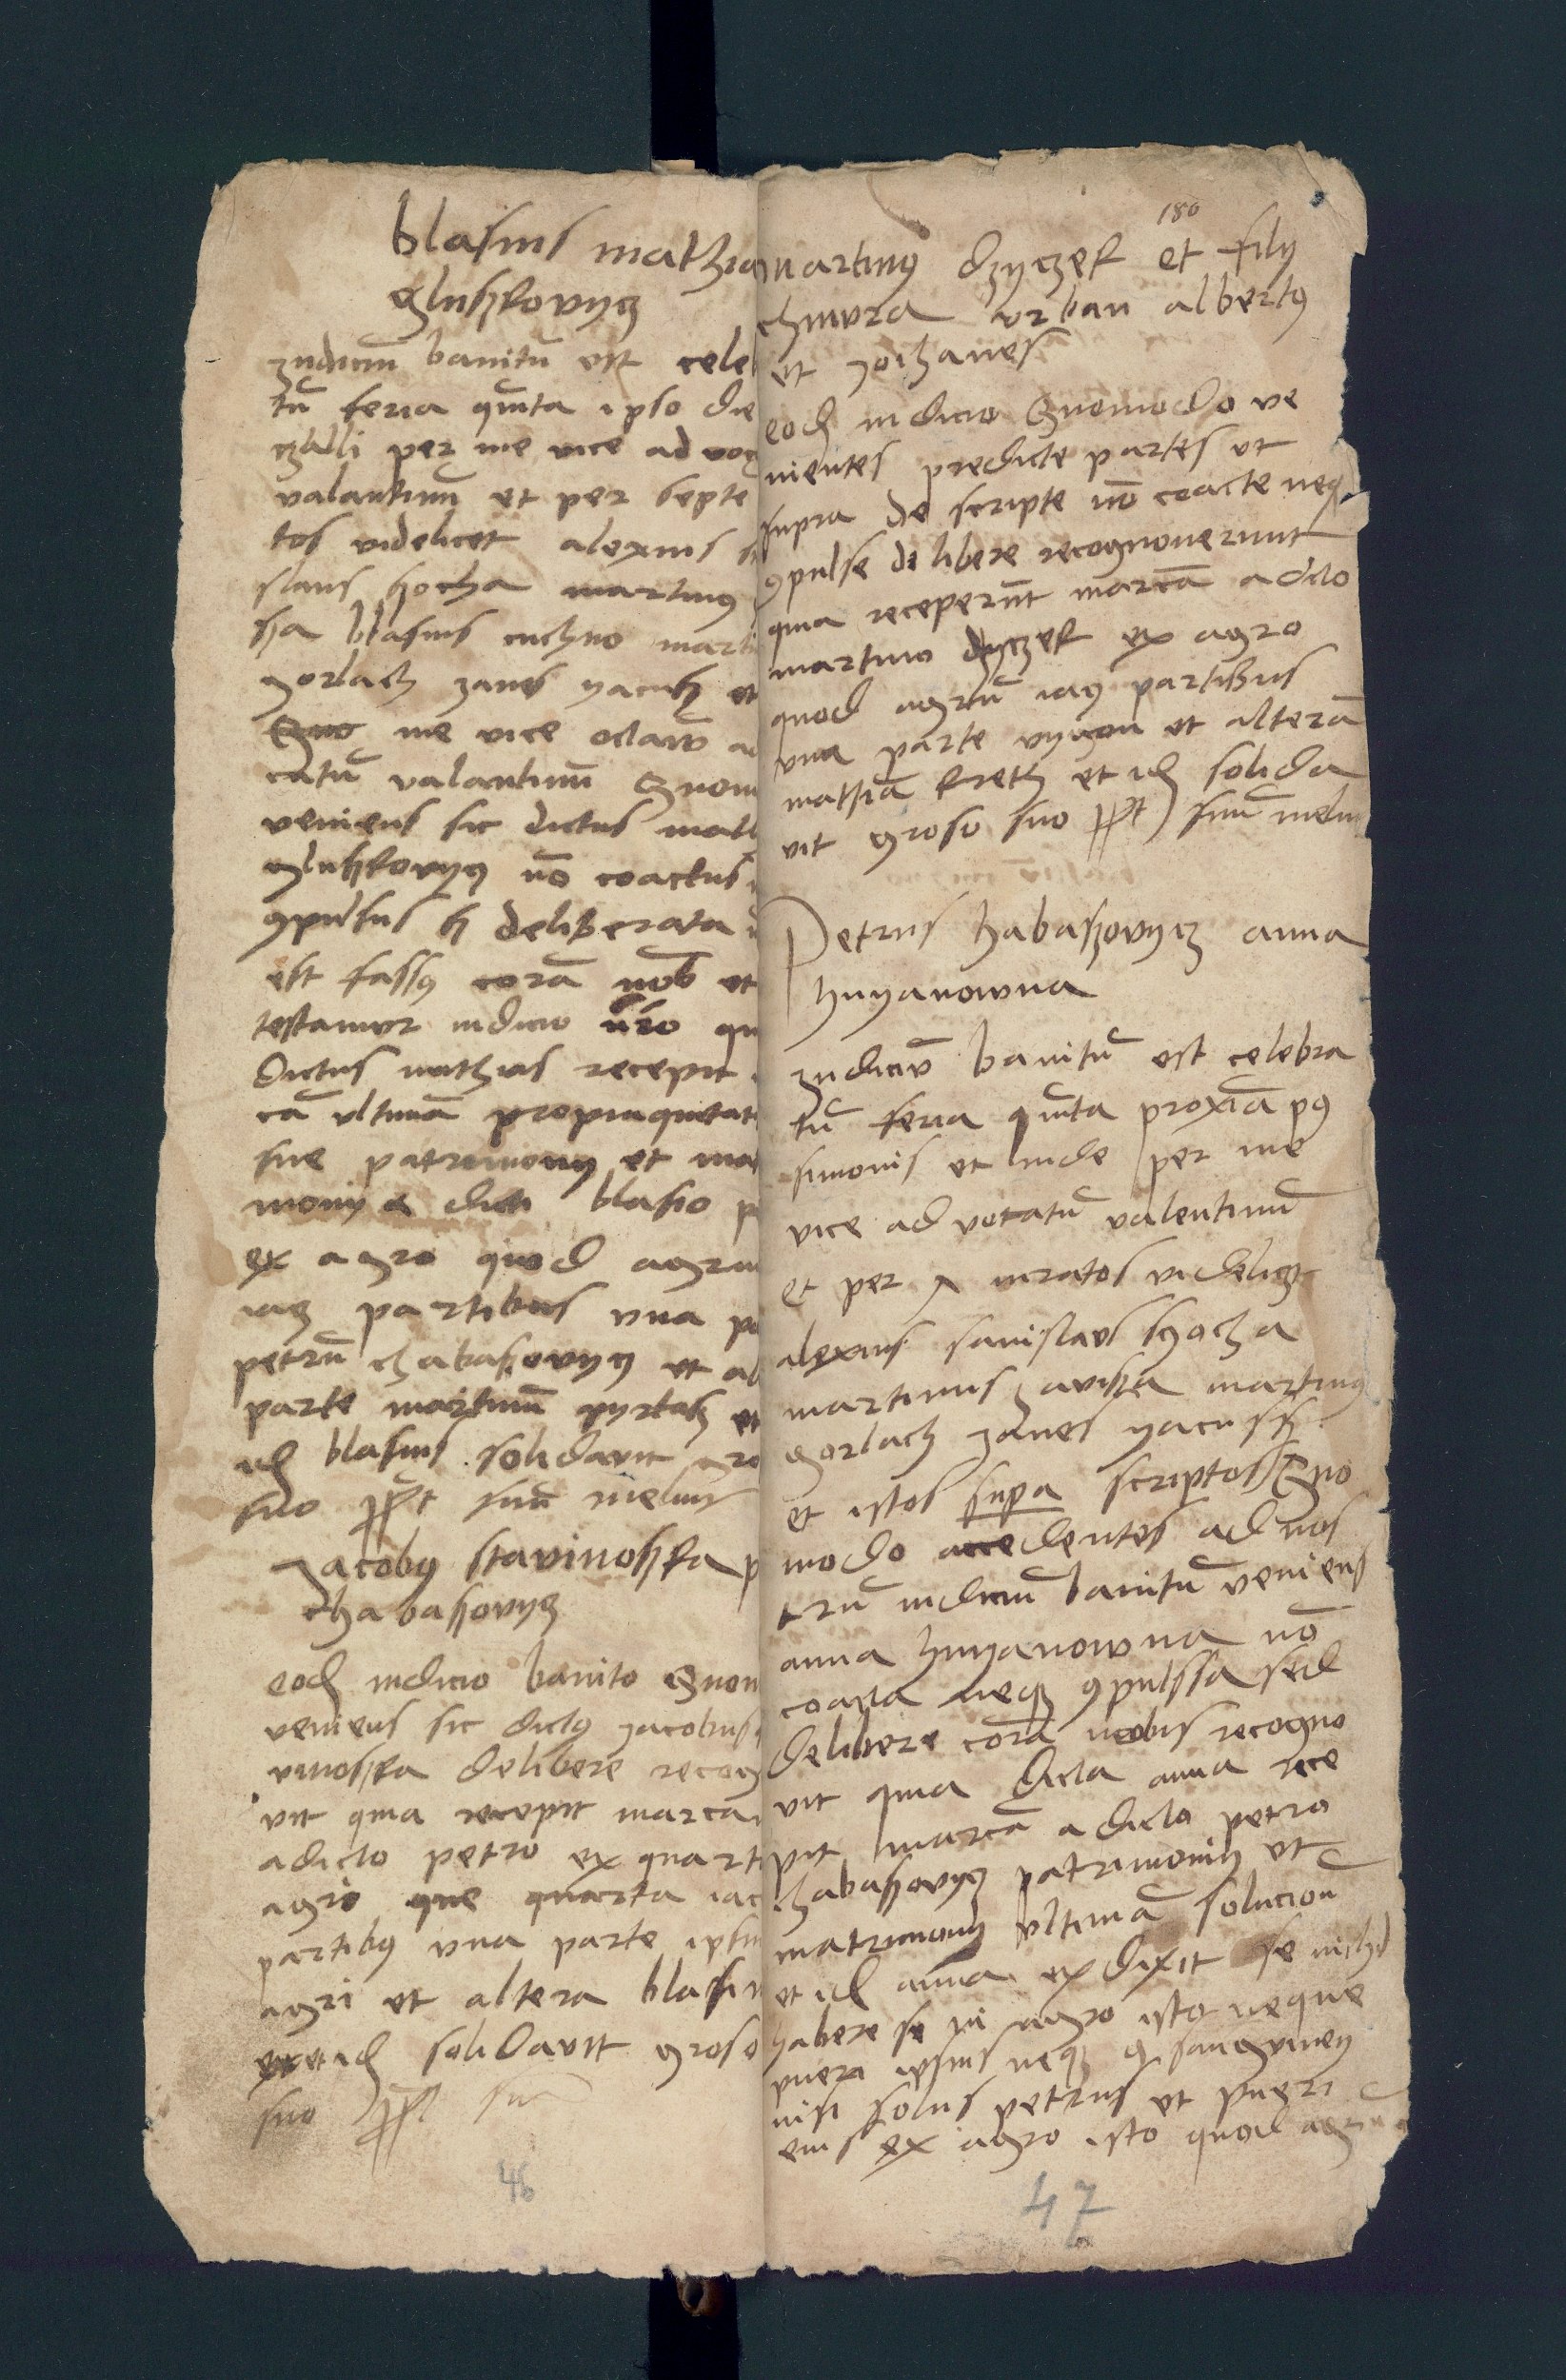 blasius mathia
gluszkovycz
Judicium banitu est celeb
tu feria quita ipso die
galli per me vice advoc
valantinu et per septe
tos videlicet alexius st
slaus hocha martinus
sza blasius cuchno marti
gorlach Janes yacush et
Quo me vice octavo ad
catu valantinu Quom
veniens sic dictus math
gluszkovycz no coactus
9pulsus s deliberata
est fassus cora nob et
testamur iudicio nro qu
dictus mathias recepit
ca ultima propinquitat
sue patrimony et mat
mony a dicti blasio p
ex agro quod agru
iacz partibus una p
petru chabaszovycz et al
parte martinu pyrtak et
id blasius solidavit gro
suo ppt suu melius
Jacobus stavinoszka p
chabaszovycz
eod iudicio banito Quom
veniens sic dictus Jacobus
vinoszka delibere recog
vit quia recepit marca
a dicto petro ex quart
agro que quarta iac
partibus una parte ipsiu
agri et altera blasiu
et id solidavit groso
suo ppt su
46
180
martinus dzyczek et fily
chmura urban albertus
et Johanes
eod iudicio Quomodo ve
nientes predicte partes ut
supra de scripte no coacte neq
9pulse delibere recognoverunt
quia receperut marca a dicto
martino dyczek ex agro
quod agru iacz partibus
una parte vygon et altera
mathia kreth et id solida
vit groso suo ppt suu meliu
Petrus habaszovycz anna
hnyanowna
Judiciu banitu est celebra
tu feria quita proxia p9
simonis et iude per me
vice advocatu valentinu
et per iuratos videlicz
alexius sanislaus schocha
martinus zavisza martinus
gorlach Janes yacussh
et istos supa scriptos Quo
modo accedentes ad nos
tru iudiciu banitu veniens
anna hnyanowna no
coacta neqz 9pulssa sed
delibere cora nobis recogno
vit quia dicta anna rece
pit marca a dicto petro
habaszovycz patrimony et
matrimony ultima solucion
et id anna ex dixit se nichil
habere se in agro isto neque
pueri ipsius neqz 9sanguiney
nisi solus petrus et pueri
eius ex agro isto quod agru
47